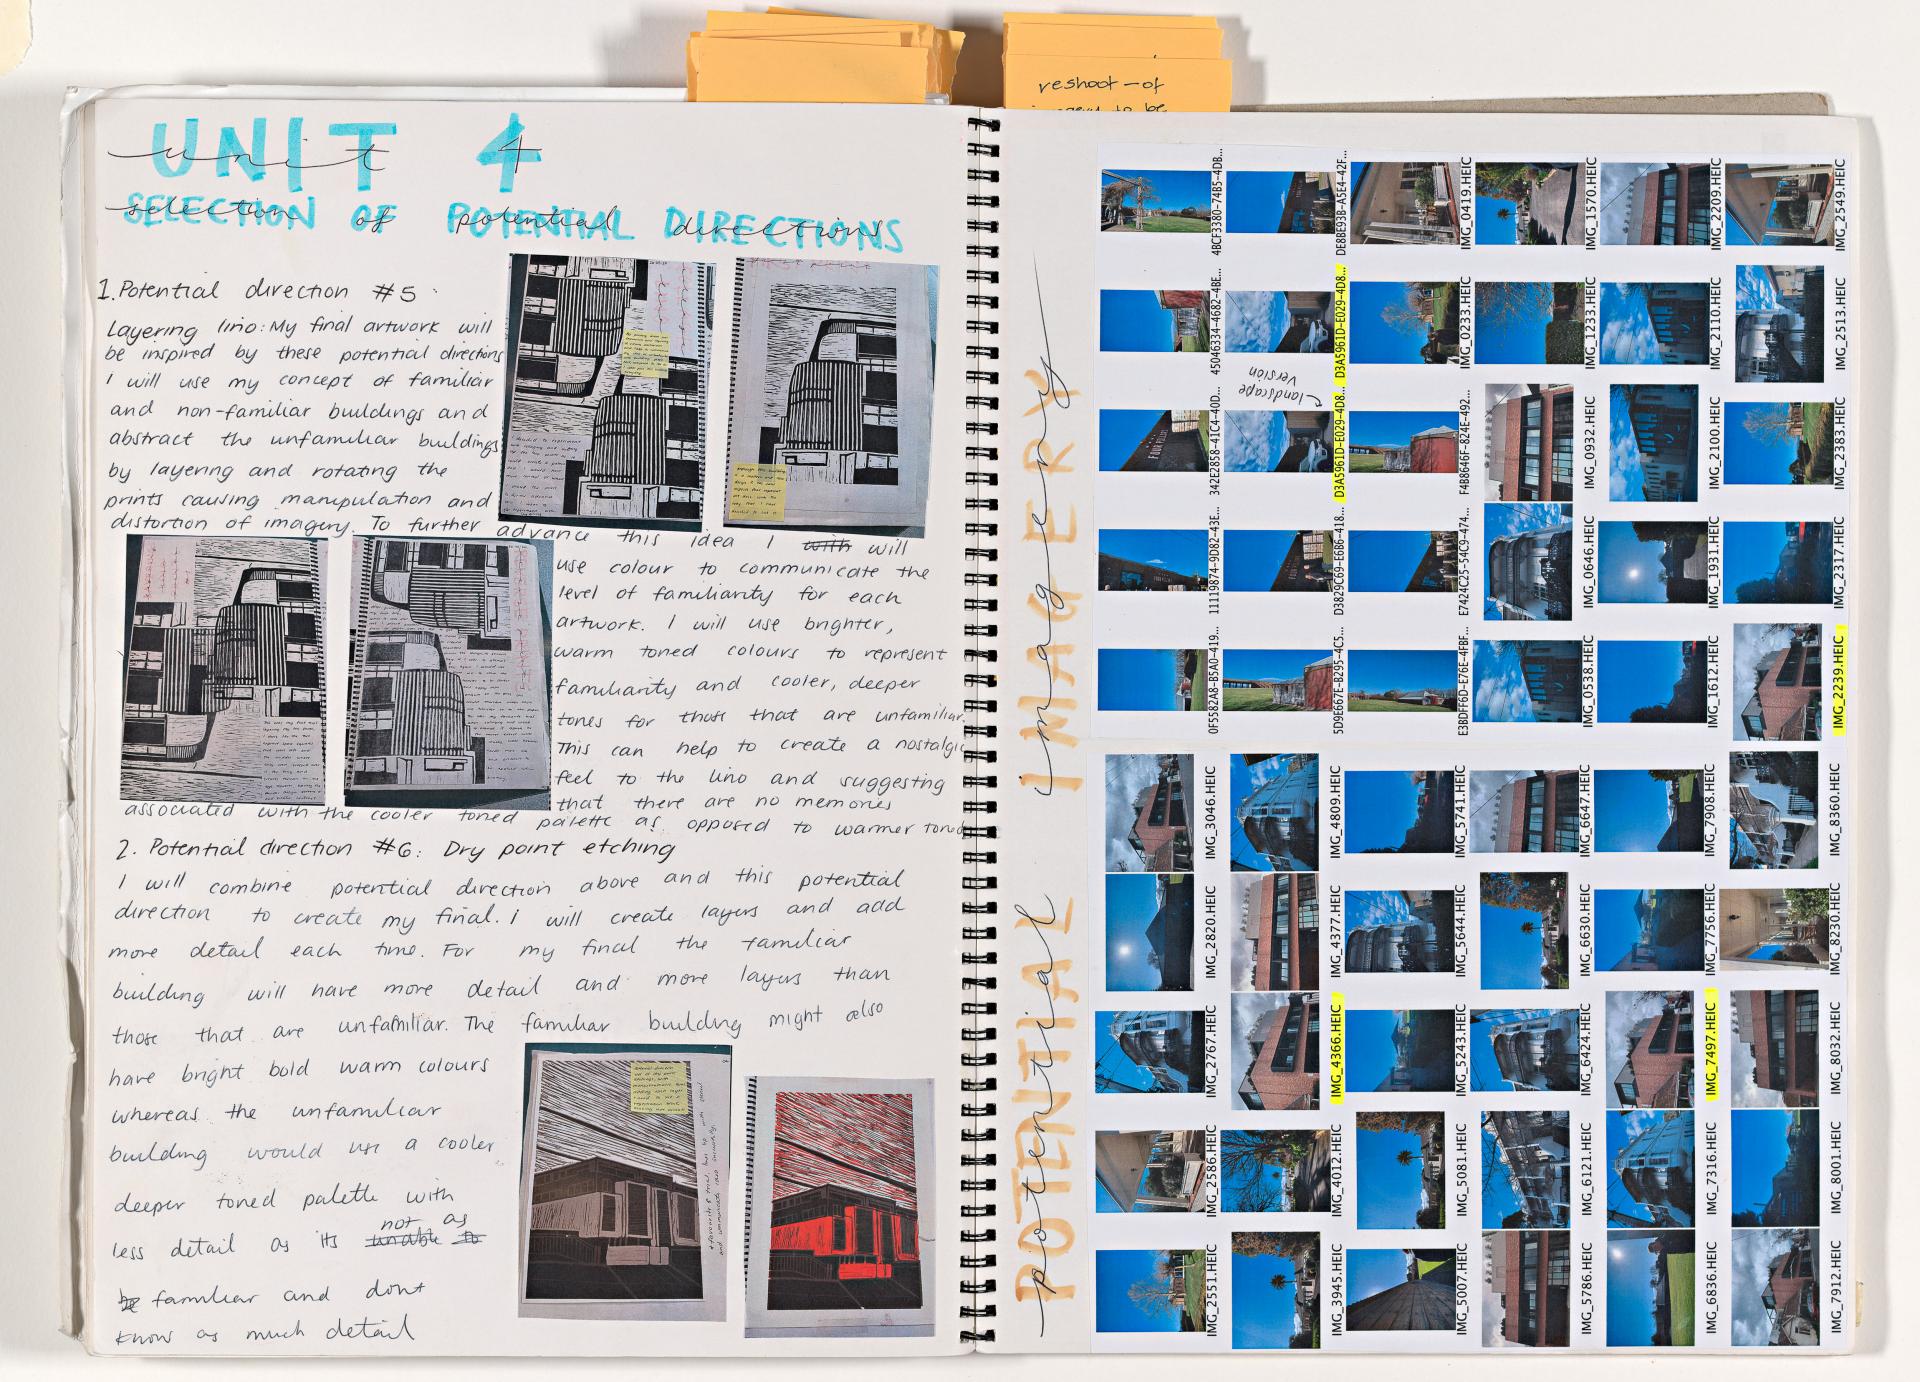 reshoot - of
imagery to be
UNIT 4
unit 4
SELECTION OF POTENTIAL DIRECTIONS
selection of potential directions
1. Potential direction #5:
Layering lino: My final artwork will
be inspired by these potential directions
I will use my concept of familiar
and non-familiar buildings and
abstract the unfamiliar buildings
by layering and rotating the
prints causing manipulation and
distortion of imagery. To further advance this idea I with will
use colour to communicate the
level of familiarity for each
artwork. I will use brighter,
warm toned colours to represent
familiarity and cooler, deeper
tones for those that are unfamiliar.
This can help to create a nostalgic
feel to the lino and suggesting
that there are no memories
associated with the cooler toned palette as opposed to warmer toned
2. Potential direction #6: Dry point etching
I will combine potential direction above and this potential
direction to create my final. I will create layers and add
more detail each time. For my final the familiar
building will have more detail and more layers than
those that are unfamiliar. The familiar building might also
have bright bold warm colours
whereas the unfamiliar
building would use a cooler
deeper toned palette with
less detail as its unable to not as
be familiar and dont
know as much detail
POTENTIAL IMAGERY
potential imagery
4BCF3380-74B5-4DB...
DE8BE93B-A5E4-42F...
IMG_0419.HEIC
IMG_1570.HEIC
IMG_2209.HEIC
IMG_2549.HEIC
45046334-4682-4BE...
D3A5961D-E029-4D8...
IMG_0233.HEIC
IMG_1233.HEIC
IMG_2110.HEIC
IMG_2513.HEIC
landscape
version
342E2858-41C4-40D...
D3A5961D-E029-4D8...
F4B8646F-824E-492...
IMG_0932.HEIC
IMG_2100.HEIC
IMG_2383.HEIC
11119874-9D82-43E...
D3829C69-E6B6-418...
E7424C25-54C9-474...
IMG_0646.HEIC
IMG_1931.HEIC
IMG_2317.HEIC
0F5582A8-B5A0-419...
5D9E667E-B295-4C5...
E3BDFF6D-E76E-4FBF...
IMG_0538.HEIC
IMG_1612.HEIC
IMG_2239.HEIC
IMG_3046.HEIC
IMG_4809.HEIC
IMG_5741.HEIC
IMG_6647.HEIC
IMG_7908.HEIC
IMG_8360.HEIC
IMG_2820.HEIC
IMG_4377.HEIC
IMG_5644.HEIC
IMG_6630.HEIC
IMG_7756.HEIC
IMG_8230.HEIC
IMG_2767.HEIC
IMG_4366.HEIC
IMG_5243.HEIC
IMG_6424.HEIC
IMG_7497.HEIC
IMG_8032.HEIC
IMG_2586.HEIC
IMG_4012.HEIC
IMG_5081.HEIC
IMG_6121.HEIC
IMG_7316.HEIC
IMG_8001.HEIC
IMG_2551.HEIC
IMG_3945.HEIC
IMG_5007.HEIC
IMG_5786.HEIC
IMG_6836.HEIC
IMG_7912.HEIC